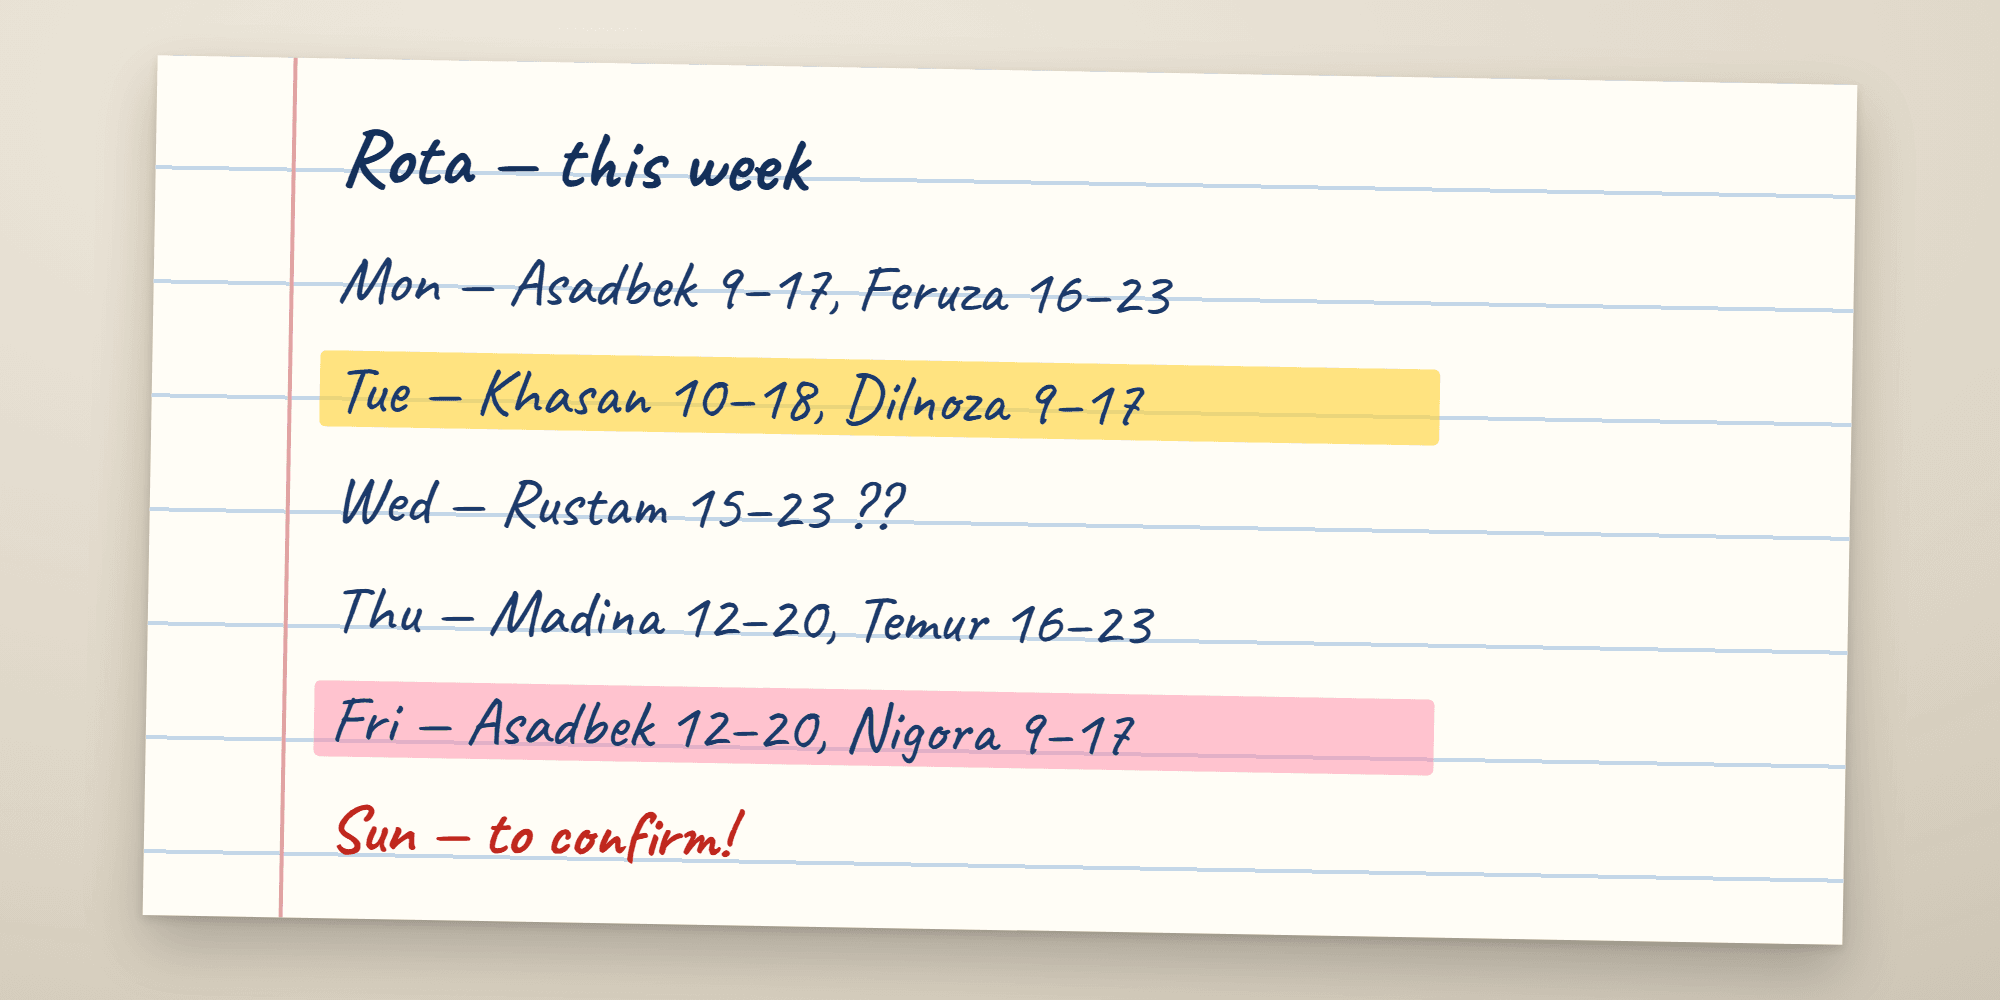 Rota — this week
Mon — Asadbek 9–17, Feruza 16–23
Tue — Khasan 10–18, Dilnoza 9–17
Wed — Rustam 15–23 ??
Thu — Madina 12–20, Temur 16–23
Fri — Asadbek 12–20, Nigora 9–17
Sun — to confirm!